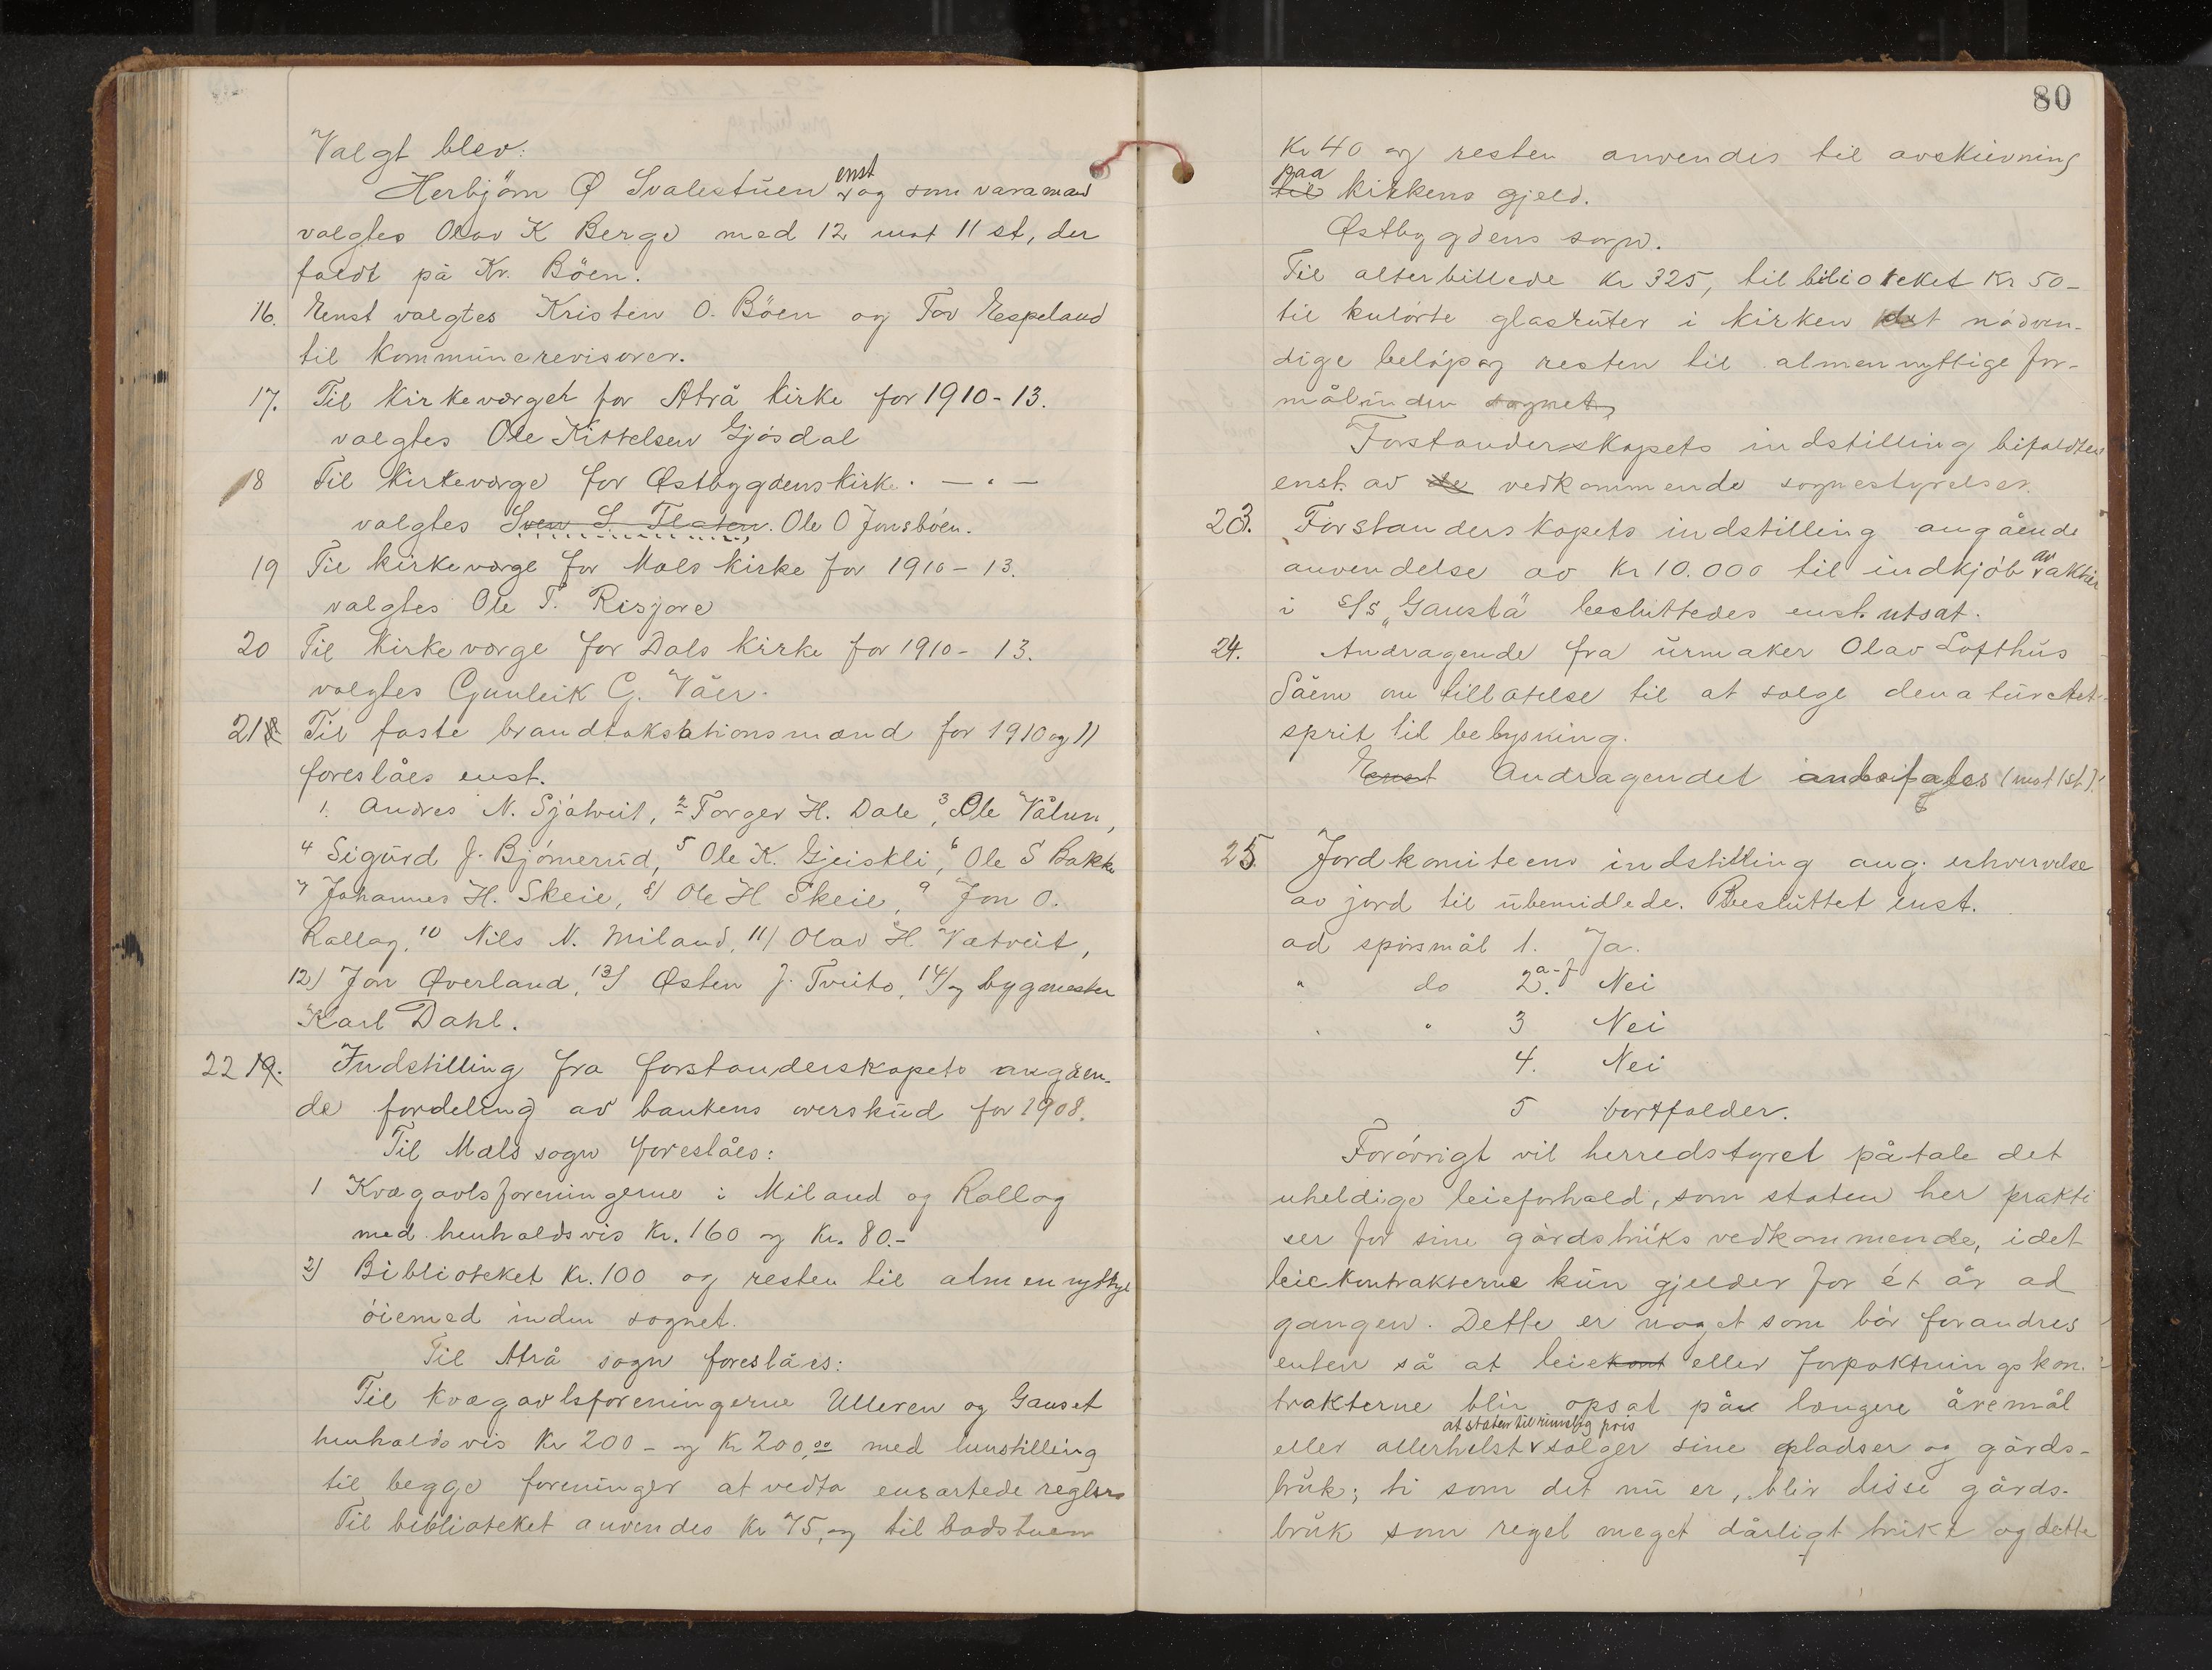 Valgt blev:
Herbjörn Ø Svalestuen enst og som varamand
valgtes Olav K Berge med 12 mot 11 st, der
faldt på Kr. Böen.
16. Enst valgtes Kristen O. Böen og Tov Espeland
til kommunerevisorer.
17. Til kirkeværger for Atrå kirke for 1910-13.
valgtes Ole Kittelsen Gjøsdal
18 Til kirkeværge for Østbygdens kirke. — " —
valgtes Sven S. Flaten. Ole O Jonsbøen.
19 Til kirkeværge for Mæls kirke for 1910-13.
valgtes Ole T. Risjore
20 Til kirkeværge for Dals kirke for 1910-13.
valgtes Gunleik G. Våer.
21 Til faste brandtakstationsmænd for 1910 og 11
foreslåes enst.
1. Andres N. Sjåtveit, 2 Torger H. Dale, 3 Ole Vålun,
4 Sigurd J. Bjørnerud, 5 Ole K. Gjeiskli, 6 Ole S Bakke
7 Johannes H. Skeie, 8) Ole H Skeie, 9 Jon O.
Rallag, 10 Nils N. Miland, 11) Olav H Vætveit,
12) Jon Øverland, 13) Østen J. Tveito, 14) og bygmester
Karl Dahl.
22 19. Indstilling fra forstanderskapets angåen-
de fordeling av bankens overskud for 1908.
Til Mæls sogn foreslåes:
1 Kvægavlsforeningerne i Miland og Rollag
med henholdsvis Kr. 160 og Kr. 80.-
2) Biblioteket Kr. 100 og resten til almennyttige
øiemed inden sognet.
Til Atrå sogn foreslåes:
Til kvægavlsforeningerne Ulleren og Gauset
henholdsvis Kr 200- og Kr 200,00 med henstilling
til begge foreninger at vedta ensartede regler
Til biblioteket anvendes Kr 75, og til badstuen
80
Kr 40 og resten anvendes til avskrivning
til paa kirkens gjeld.
Østbygdens sogn.
Til alterbillede Kr 325, til biblioteket Kr 50-
til kulørte glasruter i kirken det nødven-
dige beløp og resten til almennyttige for-
mål inden sognet,
Forstanderskapets indstilling bifaldtes
enst. av de vedkommende sognestyrelser.
23. Forstanderskapets indstilling angående
anvendelse av Kr 10.000 til indkjøb av aktier
i S/s "Gausta" besluttedes enst. utsat.
24. Andragende fra urmaker Olav Lofthus
Såem om tillatelse til at sælge denaturert
sprit til belysning.
Enst Andragendet anbefales (mot 1 st.)
25. Jordkomiteens indstilling ang. erhvervelse
av jord til ubemidlede. Besluttet enst.
ad spørsmål 1. Ja.
" do 2. a-f Nei
" " 3 Nei
4. Nei
5 bortfalder.
Forøvrigt vil herredstyret påtale det
uheldige leieforhold, som staten her prakti
ser for sine gårdsbruks vedkommende, idet
leiekontrakterne kun gjelder for ét år ad
gangen. Dette er noget som bør forandres
enten så at leiekont eller forpaktningskon-
trakterne blir opsat på længere åremål
eller allerhelst at staten til rimelig pris sælger sine pladser og gårds-
bruk; ti som det nu er, blir disse gårds-
bruk som regel meget dårligt brukt og dette